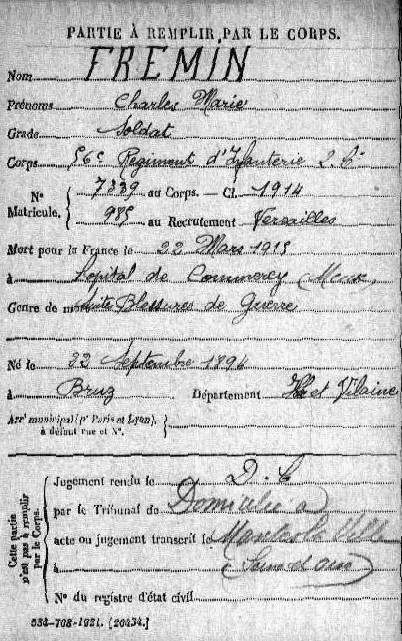 PARTIE À REMPLIR PAR LE CORPS.
Nom FREMIN
Prénoms Charles Marie
Grade Soldat
Corps 56e Régiment d'Infanterie
N° Matricule. 7339 au Corps. — Cl. 1914
985 au Recrutement Versailles
Mort pour la France le 22 Mars 1915
à hopital de Commercy Meuse
Genre de mort suite Blessures de Guerre
Né le 22 Septembre 1894
à Bruz Département Ille et Vilaine
Arrt municipal (pr Paris et Lyon), à défaut rue et N°.
Cette partie n'est pas à remplir par le Corps.
Jugement rendu le D. C
par le Tribunal de Domicilié à
acte ou jugement transcrit le Mantes la Ville
à Seine et Oise
N° du registre d'état civil
534-708-1921. [20434.]